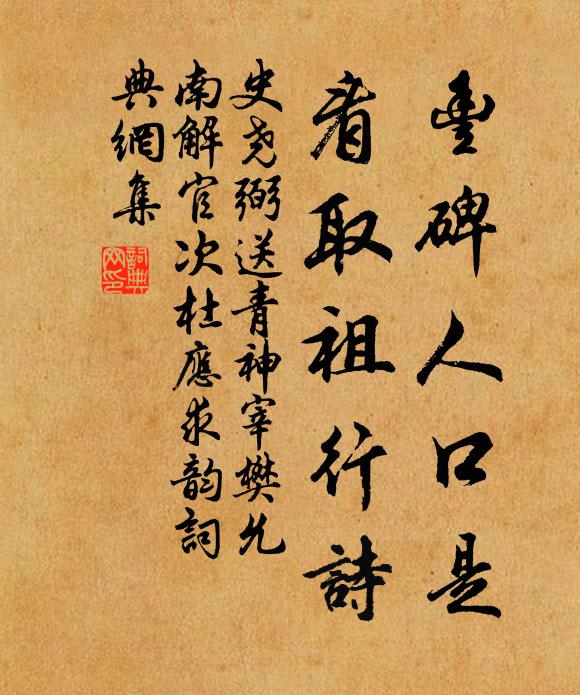 豐碑人口是
看取祖行詩
史堯弼送青神宰樊允
南解官次杜應求韵詞
典網集
詞典
网印